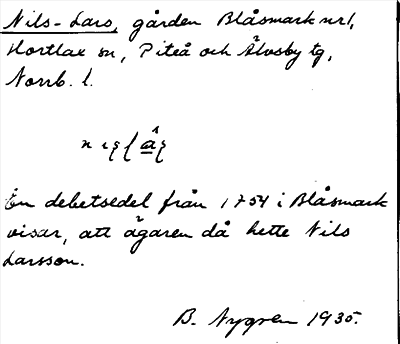 Nils-Lars, gården Blåsmark nr 1,
Hortlax sn, Piteå och Älvsby tg,
Norrb. l.
En debetsedel från 1754 i Blåsmark
visar, att ägaren då hette Nils
Larsson.
B. Nygren 1935.